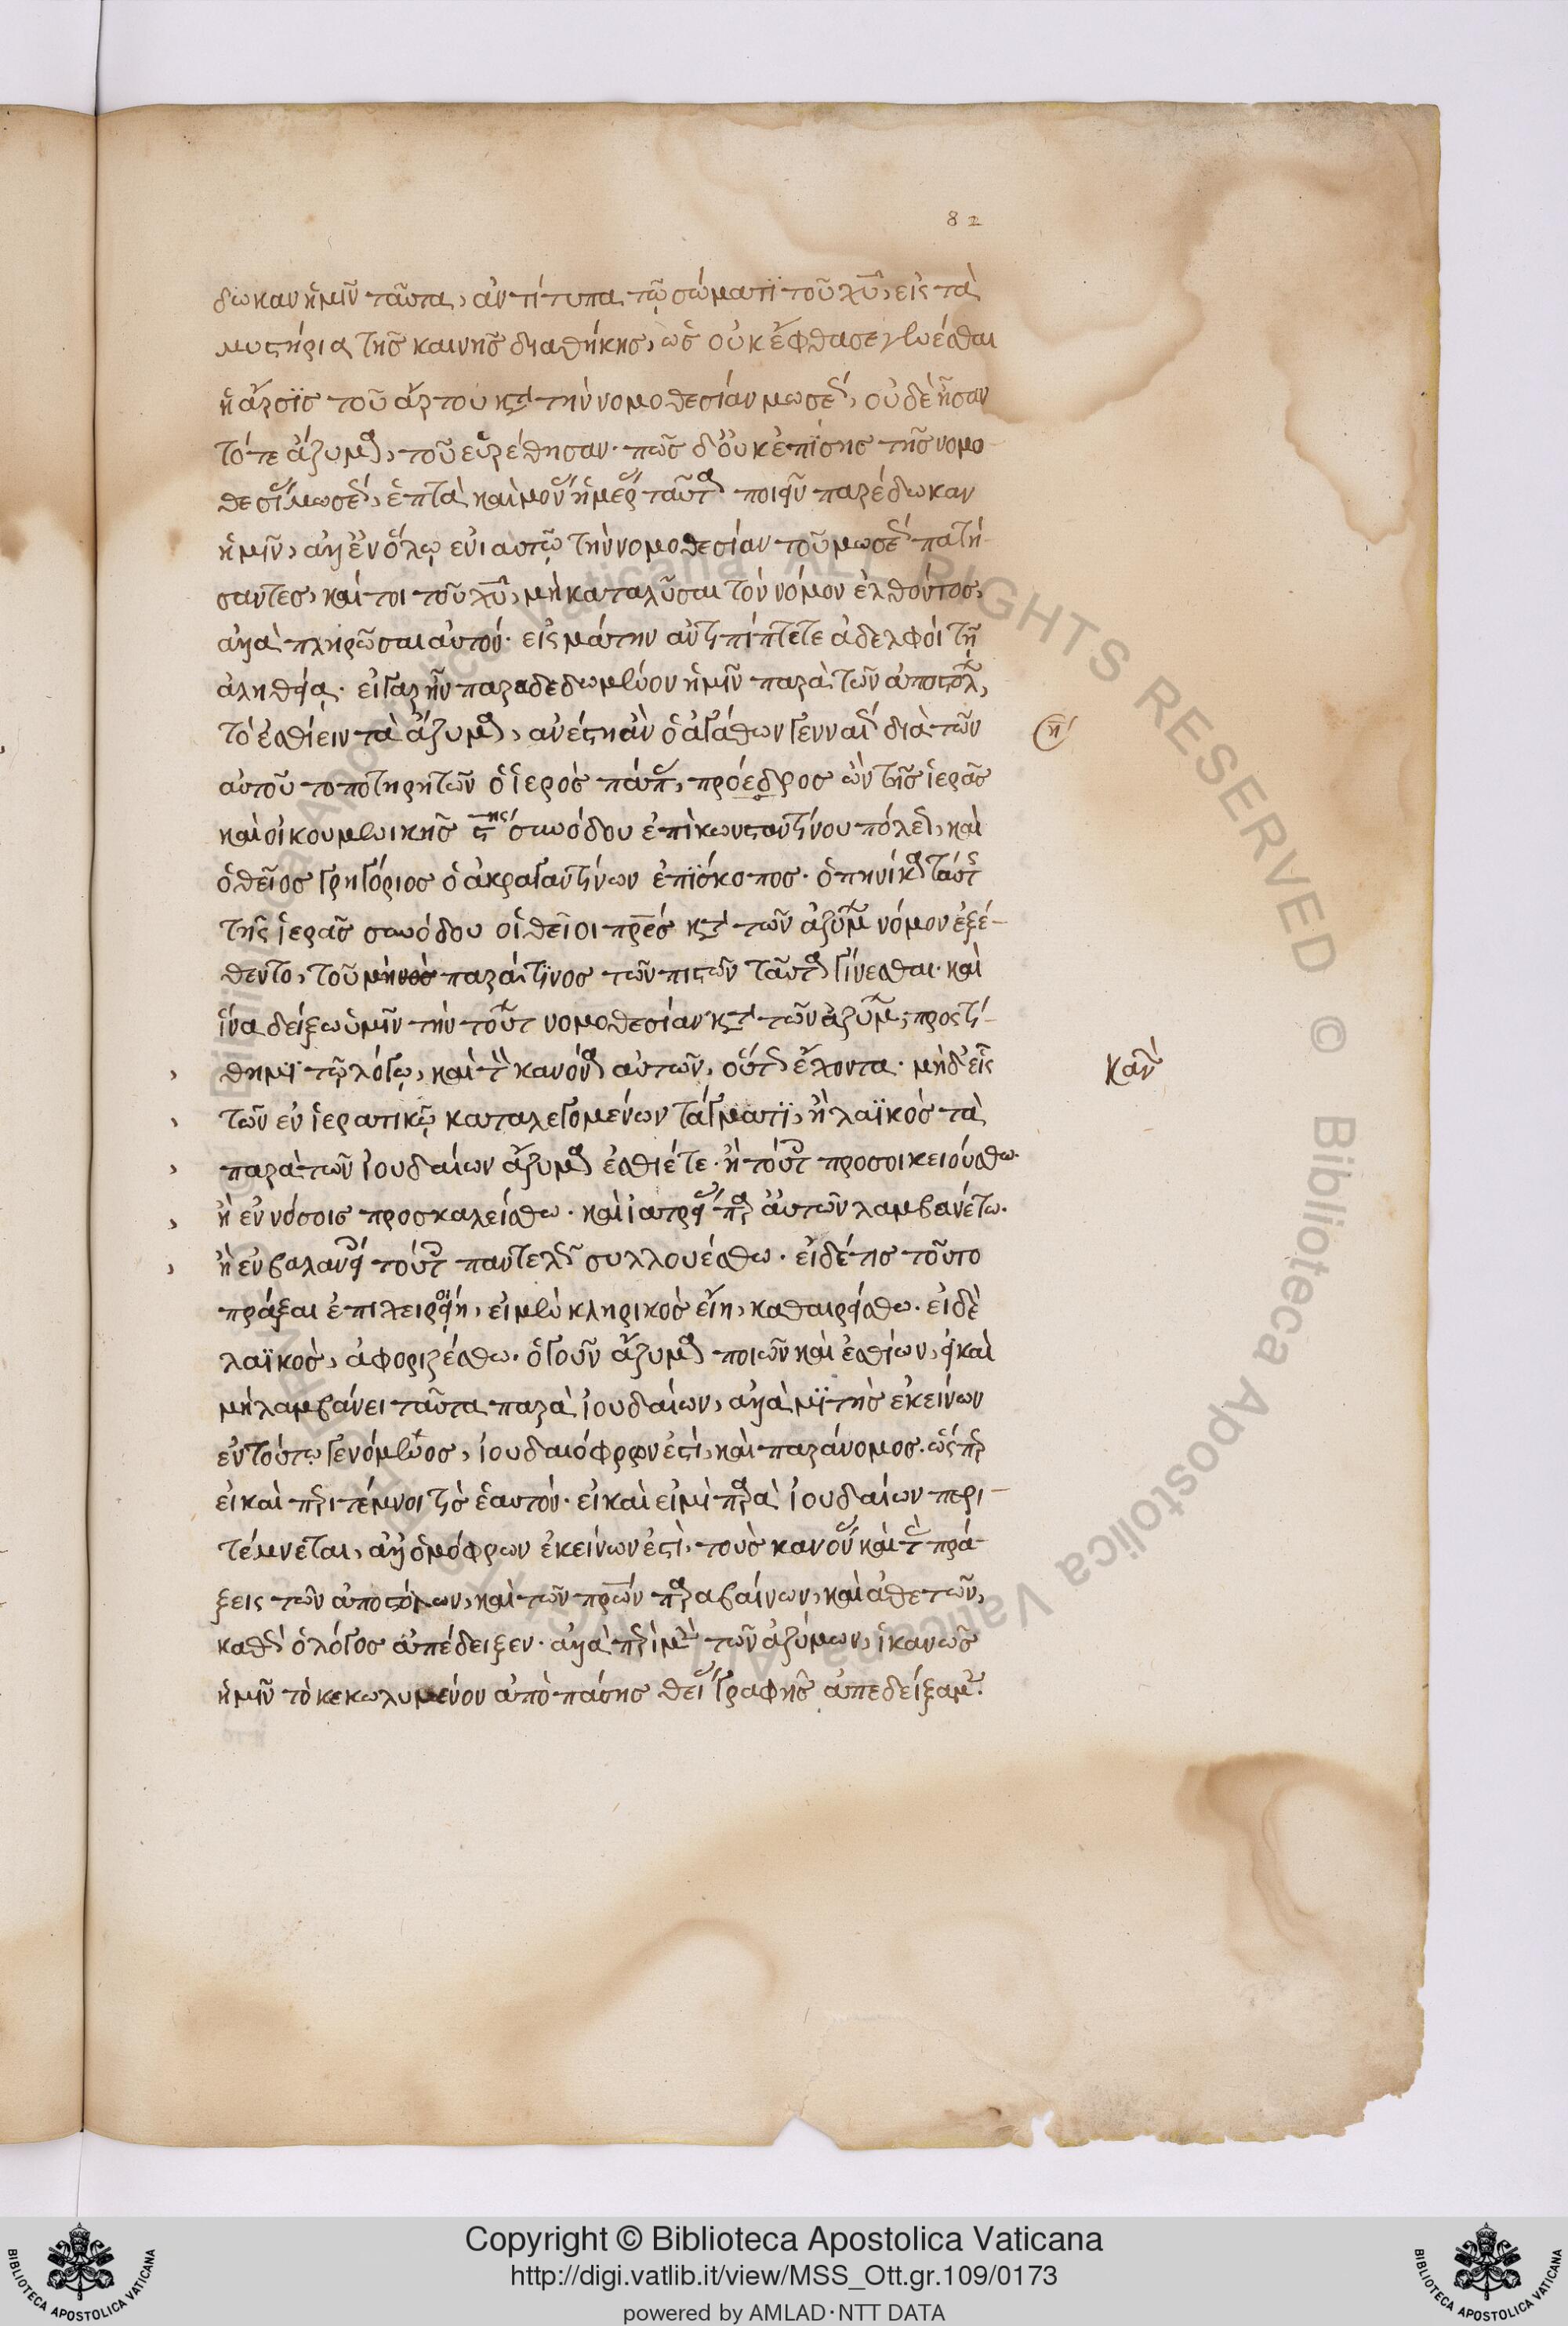 82
δωκαν ἡμῖν ταῦτα, ἀντίτυπα τῷ σώματϊ τοῦ χυ, εἰς τὰ
μυστήρια τῆς καινῆς διαθήκης, ὡς οὐκ ἔφθασε γενέσθαι
ἡ ἄρσϊς τοῦ ἄρτου κατὰ τὴν νομοθεσίαν μωσέως, οὐδὲ ἦσαν
τότε ἄζυμα, τοῦ εὑρέθησαν· πῶς δ' οὐκ ἐπίσης τῆς νομο-
θεσίας μωσέως, ἑπτὰ καὶ μόνας ἡμέρας ταῦτα ποιεῖν παρέδωκαν
ἡμῖν, ἀλλ' ἐν ὅλῳ ἐνιαυτῷ τὴν νομοθεσίαν τοῦ μωσέως πατή-
σαντες, καί τοι τοῦ χυ, μὴ καταλῦσαι τὸν νόμον ἐλθόντος,
ἀλλὰ πληρῶσαι αὐτόν· εἰς μάτην ἀντιπίπτετε ἀδελφοὶ τῇ
ἀληθείᾳ· εἰ γὰρ ἦν παραδεδωμένον ἡμῖν παρὰ τῶν ἀποστόλων,
τὸ ἐσθίειν τὰ ἄζυμα, ἀνέστη ἂν ὁ ἀγάθων γενναίως διὰ τῶν
αὐτοῦ τοποτηρητῶν ὁ ἱερὸς πάπας, πρόεδρος ὢν τῆς ἱερᾶς
καὶ οἰκουμενικῆς ϛης συνόδου ἐπὶ κωνσταντίνου πόλεως, καὶ
ὁ θεῖος γρηγόριος ὁ ἀκραγαντίνων ἐπίσκοπος· ὁπηνίκα ταύτης
τῆς ἱερᾶς συνόδου οἱ θεῖοι πρες κατὰ τῶν ἀζύμων νόμον ἐξέ-
θεντο, τοῦ μηνὸς παρά τϊνος τῶν πιστῶν ταῦτα γίνεσθαι· καὶ
ἵνα δείξω ὑμῖν τὴν τούτων νομοθεσίαν κατὰ τῶν ἀζύμων, προστί-
θημϊ τῷ λόγῳ, καὶ τὸν κανόνα αὐτῶν, οὕτως ἔχοντα· μηδεὶς
τῶν ἐν ἱερατικῷ καταλεγομένων τάγματϊ, ἢ λαϊκὸς τὰ
παρὰ τῶν ἰουδαίων ἄζυμα ἐσθιέτε· ἢ τούτοις προσοικειούσθω·
ἢ ἐν νόσοις προσκαλείσθω· καὶ ἰατρείας παρ' αὐτῶν λαμβανέτω·
ἢ ἐν βαλανείοις τούτοις παντελῶς συλλουέσθω· εἰ δέ τις τοῦτο
πράξαι ἐπιχειροίη, εἰ μὲν κληρικὸς εἴη, καθαιρείσθω· εἰ δὲ
λαϊκὸς, ἀφοριζέσθω· ὁ γοῦν ἄζυμα ποιῶν καὶ ἐσθίων, εἰ καὶ
μὴ λαμβάνει ταῦτα παρὰ ἰουδαίων, ἀλλὰ μϊτὴς ἐκείνων
ἐν τούτῳ γενόμενος, ἰουδαιόφρων ἐστὶ, καὶ παράνομος· ὥσπερ
εἰ καὶ περιτέμνοι τὶς ἑαυτόν· εἰ καὶ εἰ μὴ παρὰ ἰουδαίων περι-
τέμνεται, ἀλλ' ὁμόφρων ἐκείνων ἐστὶ, τοὺς κανόνας καὶ τὰς πρά-
ξεις τῶν ἀποστόλων, καὶ τῶν πρων παραβαίνων, καὶ ἀθετῶν,
καθὼς ὁ λόγος ἀπέδειξεν· ἀλλὰ περὶ μὲν τῶν ἀζύμων, ἱκανῶς
ἡμῖν τὸ κεκωλυμένον ἀπὸ πάσης θείας γραφῆς ἀπεδείξαμεν.
η
Κανών
Copyright © Biblioteca Apostolica Vaticana
http://digi.vatlib.it/view/MSS_Ott.gr.109/0173
powered by AMLAD·NTT DATA